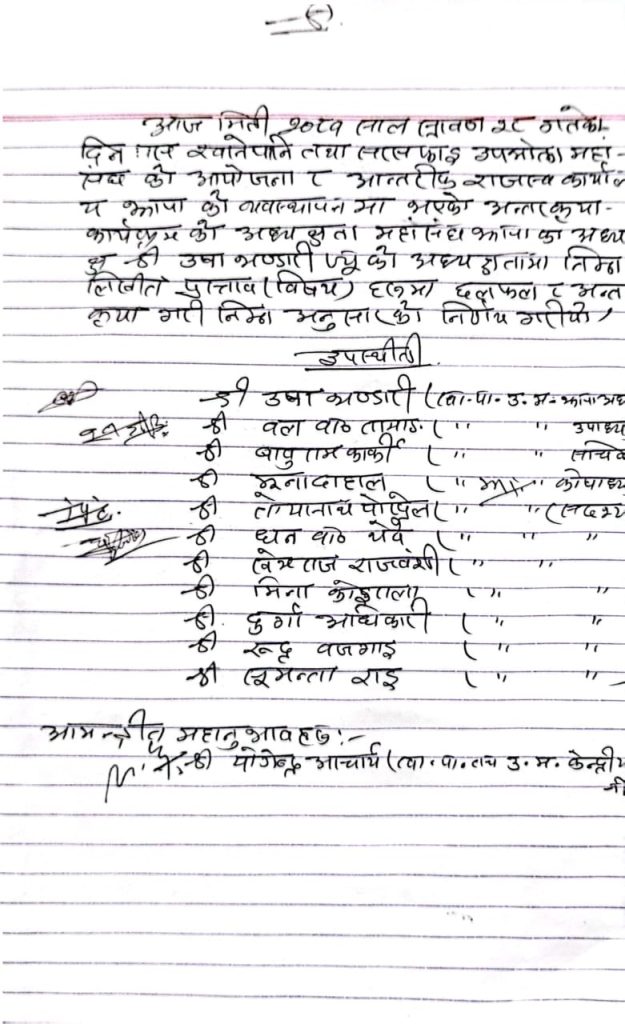 आज मिती २०८१ साल श्रावण २८ गतेका
दिन खानेपानि तथा सरसफाइ उपभोक्ता महा-
संघ को आयोजना र आन्तरीक राजस्व कार्याल
य झापा को व्यवस्थापन मा भएको अन्तरकृया-
कार्यक्रम को अध्यक्षता महांसंघ झापा का अध्य
क्ष श्री उषा भण्डारी ज्यू को अध्यक्षतामा निम्न
लिखीत प्रस्ताव (विषय) हरुमा छलफल र अन्त
कृया गरी निम्न अनुसार को निर्णय गरीयो,
उपस्थीती
श्री उषा भण्डारी (खा.पा.उ.म.झापा अध्य
श्री वल वाठ तामाङ (" " उपाध्य
श्री बापुराम कार्की (" " सचिव
श्री दाहाल (" " कोषाध्य
श्री पोख्रेल (" " (सदस्य
श्री धन वाठ (" " "
श्री खेमराज राजवंशी (" "
श्री मिना कोइराला (" "
श्री दुर्गा अधिकारी (" "
श्री रूद्र वजगाइ (" "
श्री राइ (" "
आमन्त्रीत महानुभावहरु:-
श्री योगेन्द्र आचार्य (खा.पा.तथ उ.म. केन्द्रीय